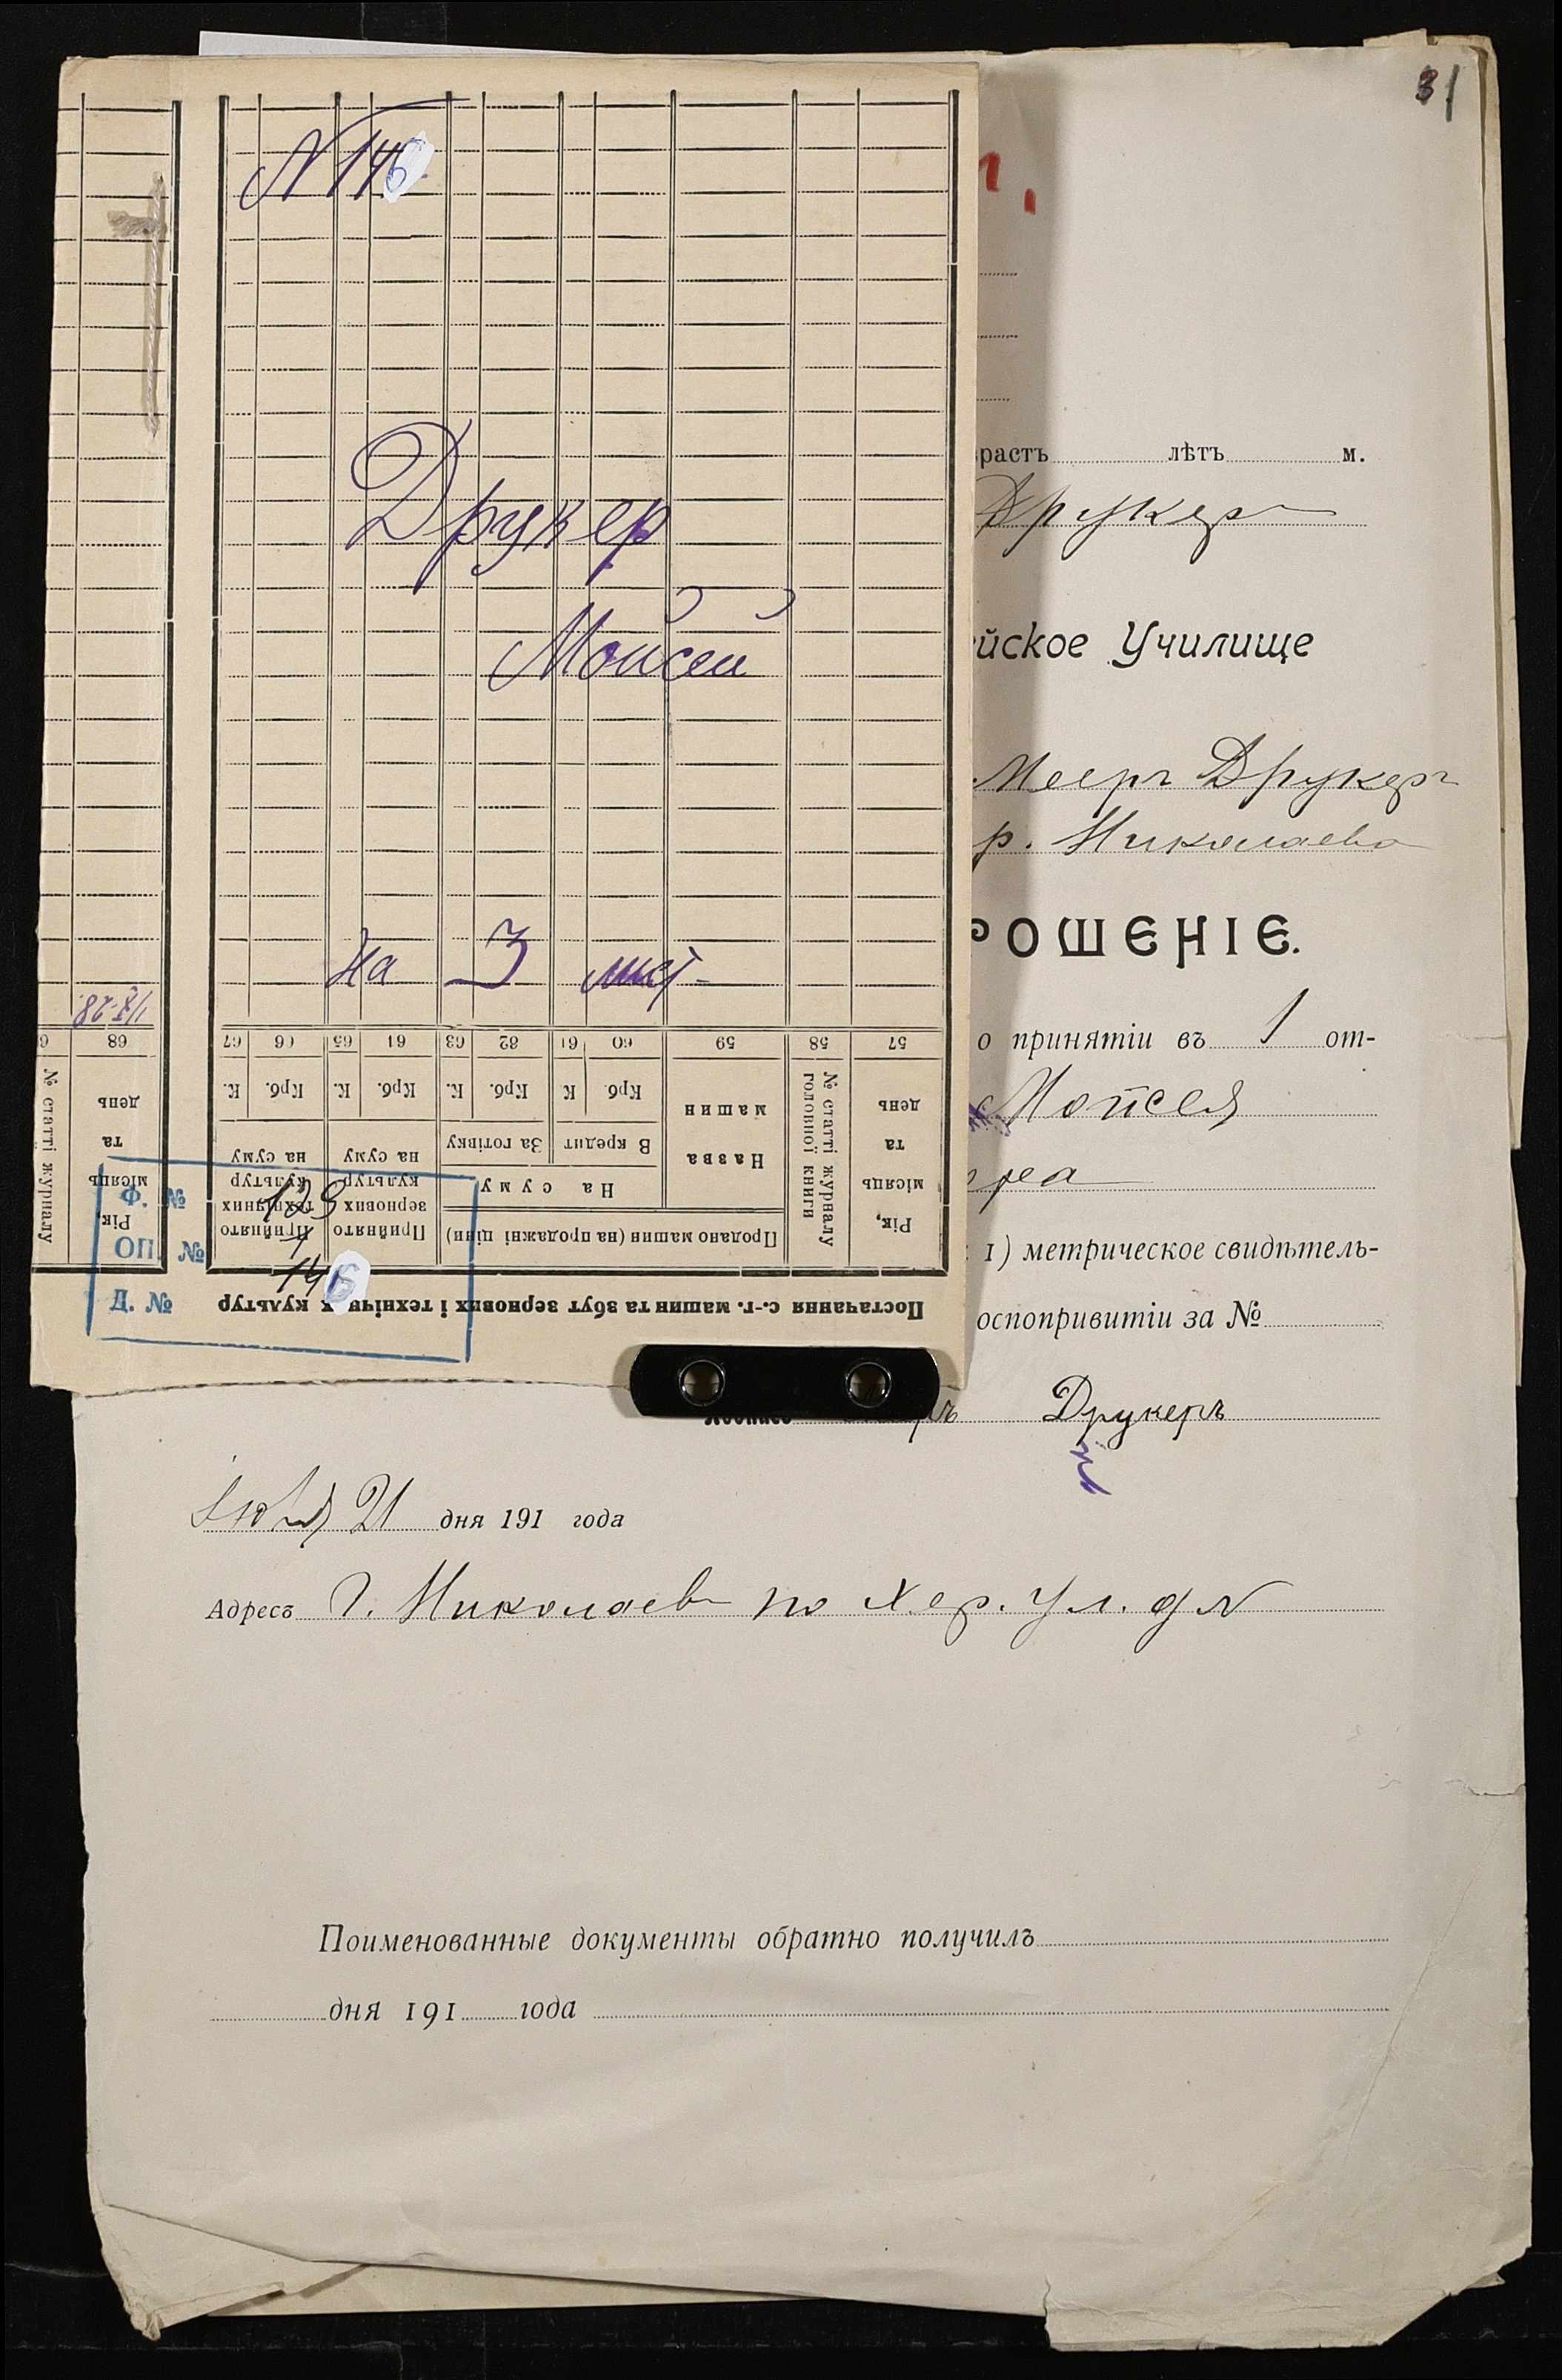 31
№ 146
Друкер
Мойсей
На 3 лист
1/X-28.
57 58 59 60 61 62 63 64 65 66 67
68
Рік, місяць та день
№ статті журналу головної книги
Продано машин (на продажні ціни)
Назва машин
На суму
В кредит
За готівку
Крб. К.
Крб. К.
Прийнято зернових культур на суму
Крб. К.
Прийнято технічних культур на суму
Крб. К.
Рік, місяць та день
№ статті журналу
Постачання с.-г. машин та збут зернових і технічних культур
Ф. № 129
ОП. № 1
Д. № 146
растъ лѣтъ м.
Друкеръ
йское Училище
Мееръ Друкеръ
р. Николаева
РОШЕНІЕ.
о принятіи въ 1 от-
Мойсея
ера
1) метрическое свидѣтель-
оспопривитіи за №
ръ Друкеръ
Іюля 21 дня 191 года
Адресъ Г. Николаев по Хер. ул. д №
Поименованные документы обратно получилъ
дня 191 года